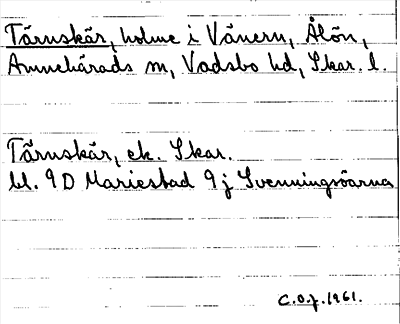 Tärnskär, holme i Vänern, Ålön,
Amnehärads sn, Vadsbo hd, Skar. l.
Tärnskär, ek. Skar.
bl. 9D Mariestad 9j Svenningsöarna
C.O.J. 1961.